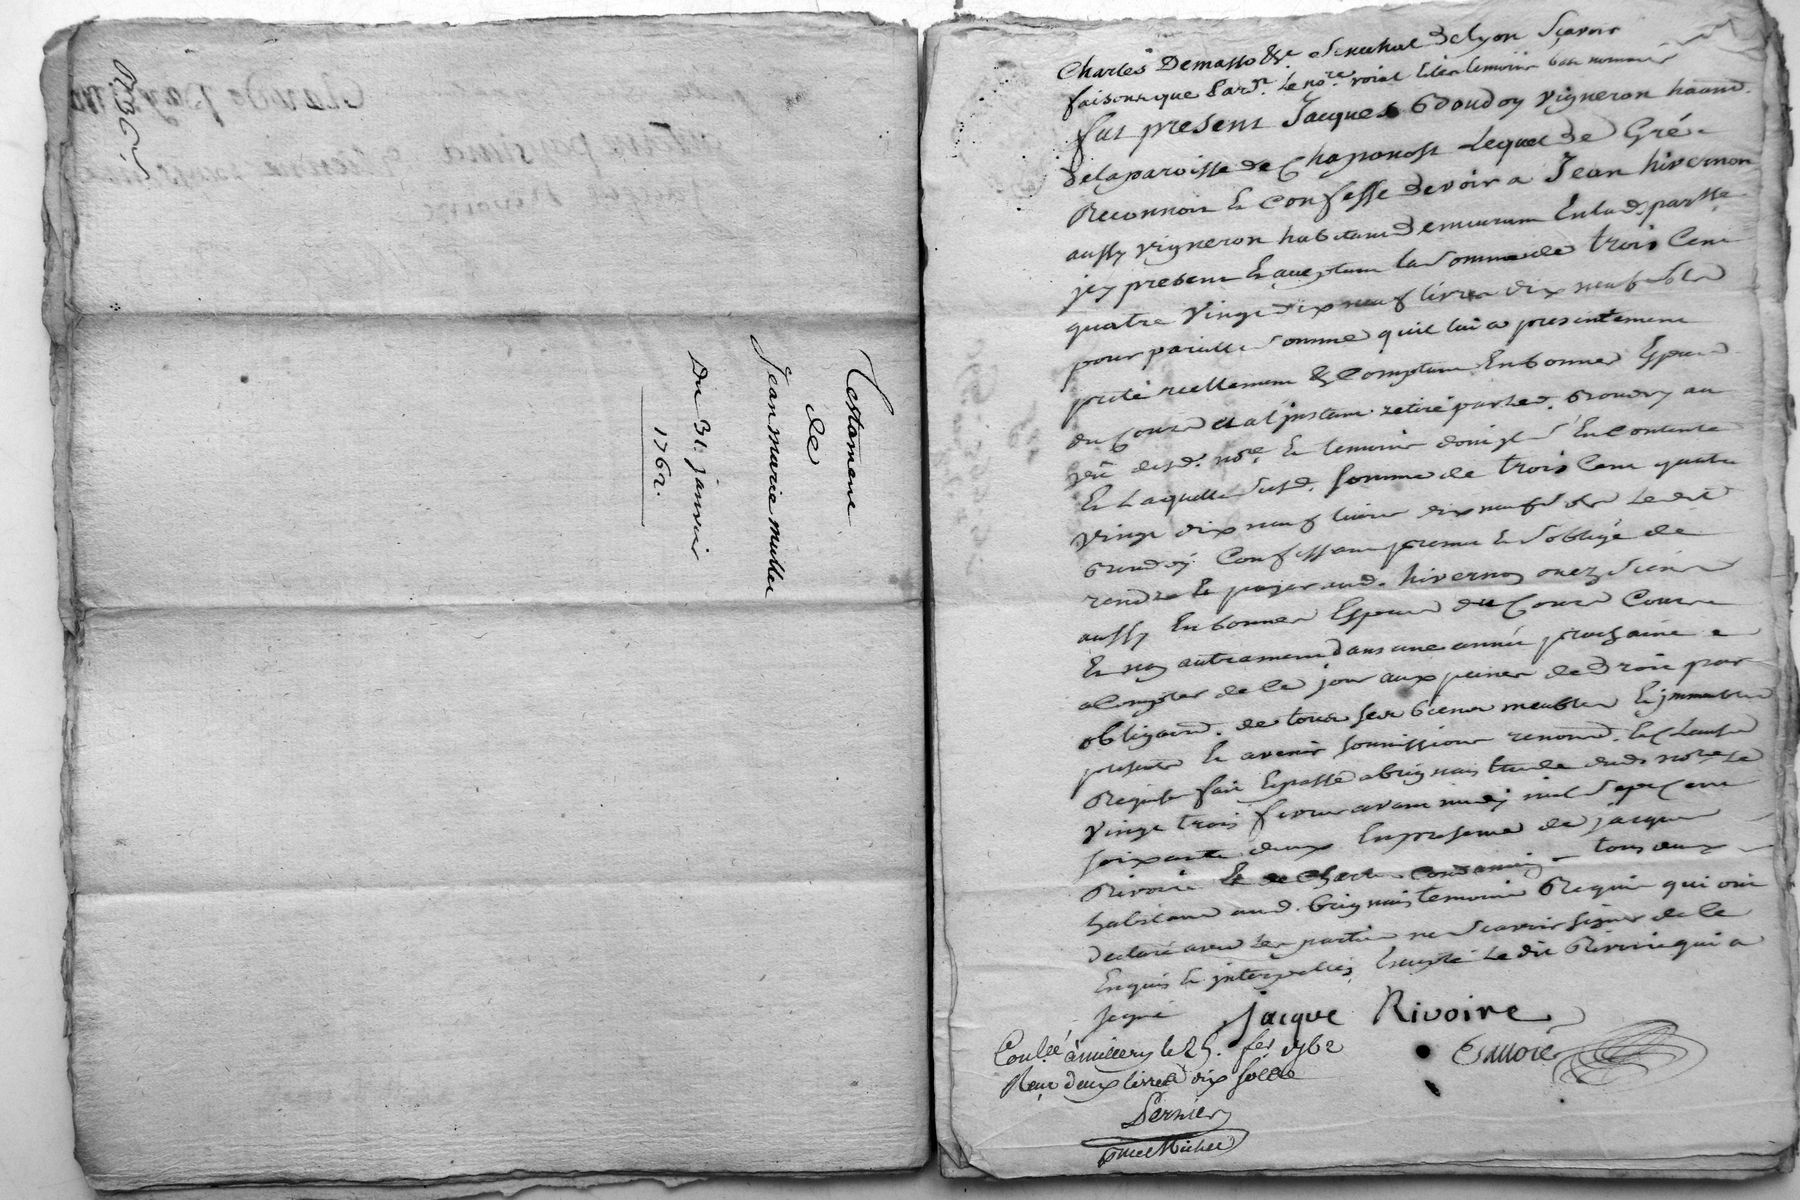 Testament
de
Jean marie mullet
Du 31. janvier
1762.
Charles Demasso &r. Senechal de lyon Sçavoir
faisons que par dt. le nore. roial & les temoins bas nommés
fut present Jacques Goudoy vigneron habitt.
de la paroisse de Chaponost lequel de Gré
Reconnoit & Confesse devoir a Jean hivernon
aussy vigneron habitant demeurant En lad. parsse
jcy present & aceptant la Somme de trois Cent
quatre Vingt dix neuf livres dix neuf sols
pour pareille Somme qu'il lui a presentement
preté reellement & Comptant En bonnes Especes
du Cours et a l'instant retiré par led. Goudoy au
veu desd. nore & temoins dont il s'En Contente
& Laquelle susd. Somme de trois Cent quatre
vingt dix neuf livres dix neuf sols le dit
Goudoy Confessant promet & s'oblige de
rendre & payer aud. hivernon ou ez Siens
aussy En bonnes Especes du Cours
& non autrement dans une année prochaine
a Compter de ce jour aux peines de Droit par
obligaon. de tous ses biens meubles & jmmeubles
presents & avenir Soumissions renond. & Clauses
Requises fait & passé a brignais Etude dud. nore le
vingt trois fevrier avant midy mil Sept Cent
soixante deux En presence de jacques
Rivoire & de Charles Condamin tous deux
habitans aud. brignais temoins Requis qui ont
declaré avec les parties ne Scavoir signer de ce
Enquis & jnterpellés Excepté le dit Rivoire qui a
signé
jacque Rivoire
Conllé a millery le 25. fer 1762
Reçu deux livres dix sols